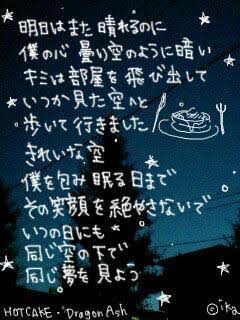 明日はまた晴れるのに
僕の心 曇り空のように暗い
キミは部屋を飛び出して
いつか見た空へと
歩いて行きました
きれいな空
僕を包み眠る日まで
その笑顔を絶やさないで
いつの日にも
同じ空の下で
同じ夢を見よう
HOTCAKE・Dragon Ash
©ika